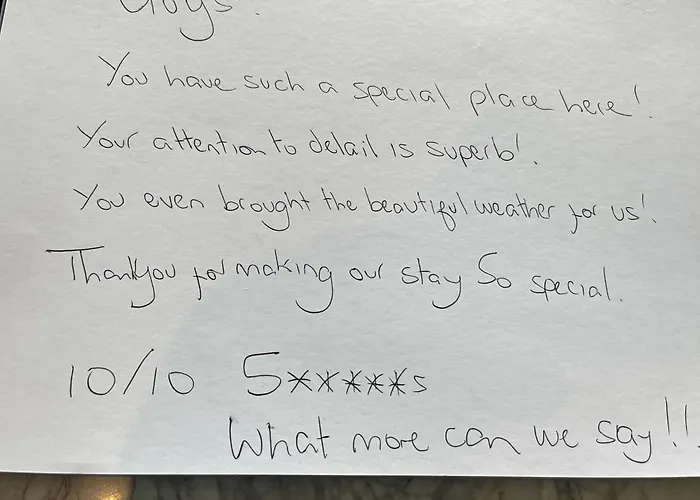 Guys.
You have such a special place here!
Your attention to detail is superb!
You even brought the beautiful weather for us!
Thankyou for making our stay So special.
10/10 5*****s
What more can we say!!